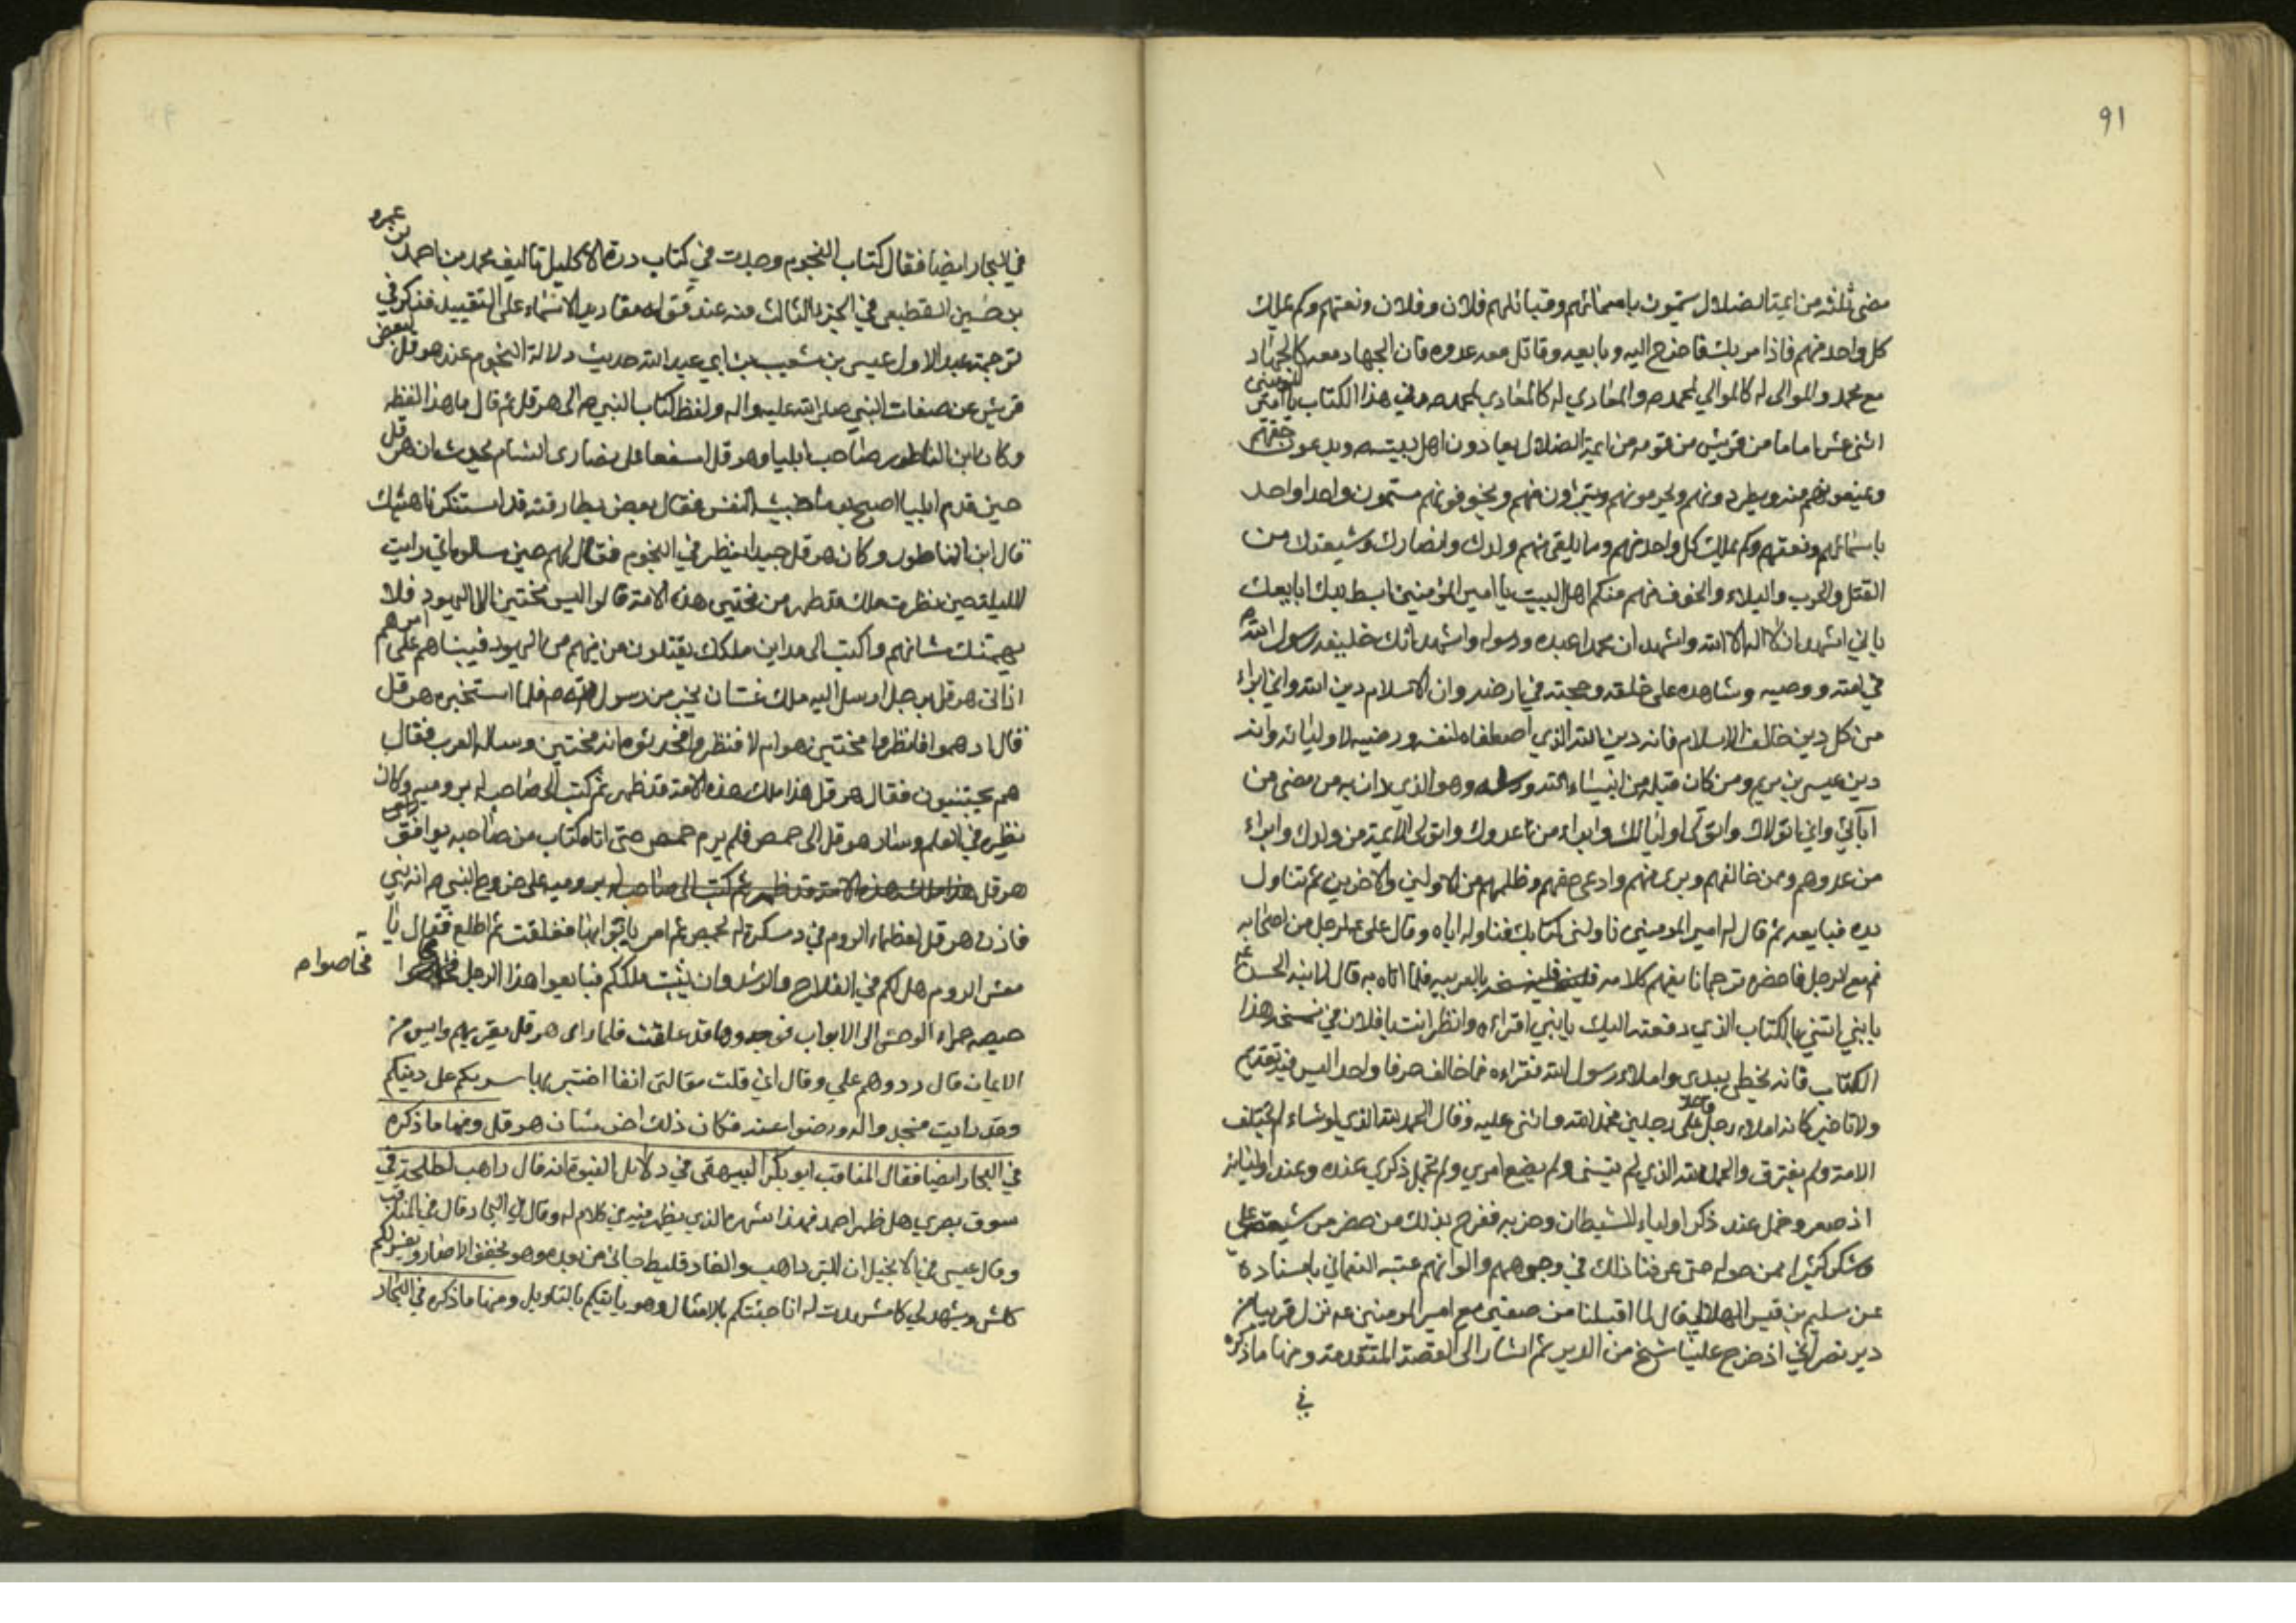 ٩١
مضى ثلثه من ائمة الضلال يسمون باسمائهم وقبائلهم فلان وفلان ونعتهم وكم يملك
كل واحد منهم فاذا مر بك فاخرج اليه وبايعه وقاتل معه عدوه فان الجهاد معه كالجهاد
مع محمد والموالى له كالموالي لمحمد ص والمعادي له كالمعادي لمحمد ص وفي هذا الكتاب يا امير المؤمنين
اثنى عشر اماما من قريش من قومه من ائمة الضلال يعادون اهل بيته ويدعون حقهم
ويمنعونهم منه ويطردونهم ويحرمونهم ويتبرؤن منهم ويخوفونهم مسمون واحدا واحدا
باسمائهم ونعتهم وكم يملك كل واحد منهم وما يلقى منهم ولدك وانصارك وشيعتك من
القتل والحرب والبلاء والخوف منهم منكم اهل البيت يا امير المؤمنين ابسط يدك ابايعك
باني اشهد ان لا اله الا الله واشهد ان محمدا عبده ورسوله واشهد انك خليفة رسول الله ص
في امته ووصيه وشاهده على خلقه وحجته في ارضه وان الاسلام دين الله واني ابراء
من كل دين خالف الاسلام فانه دين الله الذي اصطفاه لنفسه ورضيه لاوليائه وانه
دين عيسى بن مريم ومن كان قبله من انبياء الله ورسله وهو الذي دان به من مضى من
آبائي واني اتولاك واتولى اوليائك وابراء من عدوك واتولى الائمة من ولدك وابراء
من عدوهم وممن خالفهم وبرئ منهم وادعى حقهم وظلمهم من الاولين والاخرين ثم تناول
يده فبايعه ثم قال له امير المومنين ناولنى كتابك فناوله اياه وقال على ع لرجل من اصحابه
قم مع الرجل فاحضر ترجمانا يفهم كلامه فلينسخه بالعربيه فلما اتاه به قال لابنه الحسن ع
يا بني ائتني بالكتاب الذي دفعته اليك يا بني اقراءه وانظر انت يا فلان في نسخة هذا
الكتاب فانه بخطى بيدى واملاء رسول الله فقراءه فما خالف حرفا واحدا ليس فيه تقديم
ولا تاخير كانه املاء رجل واحد على رجلين فحمد الله واثنى عليه وقال الحمد لله الذي لو شاء لم تختلف
الامة ولم يفترق والحمد لله الذي لم ينسنى ولم يضع امري ولم يخمل ذكري عنده وعند اوليائه
اذ صغر وخمل عنده ذكر اولياء الشيطان وحزبه ففرح بذلك من حضر من شيعة على
وشكر كثيرا ممن حوله حتى عرفنا ذلك في وجوههم والوانهم غيبة النعماني باسناده
عن سليم بن قيس الهلالي قال لما اقبلنا من صفين مع امير المومنين ع نزل قريبا من
دير نصراني اذ خرج علينا شيخ من الدير ثم اشار الى القصة المتقدمة ومنها ما ذكره
في
في البحار ايضا فقال كتاب النجوم وجدت في كتاب درة الاكليل تاليف محمد بن احمد بن عمرو
بن حسين القطيعي في الجزء الثالث منه عند قوله مفاريد الاسماء على التقييد فذكر في
ترجمة عبد الاول عيسى بن شعيب بن ابي عبد الله حديث دلالة النجوم عند هرقل لبعض
قريش عن صفات النبي صلى الله عليه واله ولفظ كتاب النبي ص الى هرقل ثم قال ما هذا لفظه
وكان ابن الناطور صاحب ايليا وهرقل اسقفا على نصارى الشام يحدث ان هرقل
حين قدم ايليا اصبح يوما خبيث النفس فقال بعض بطارقته قد استنكرنا هيئتك
قال ابن الناطور وكان هرقل حبيدا ينظر في النجوم فقال لهم حين سالوه اني رايت
الليلة حين نظرت ملك قد ظهر من يختتن هذه الامة قالوا ليس يختتن الا اليهود فلا
يهمنك شانهم واكتب الى مداين ملكك يقتلون من فيهم من اليهود فبيناهم على امرهم
اذ اتى هرقل برجل ارسل اليه ملك غسان يخبر من رسول الله ص فلما استخبره هرقل
قال اذهبوا فانظروا مختتن هو ام لا فنظروا فحدثوه انه مختتن وساله العرب فقال
هم يختتنون فقال هرقل هذا ملك هذه الامة قد ظهر ثم كتب الى صاحب له برومية وكان
نظيره في العلم وسار هرقل الى حمص فلم يرم حمص حتى اتاه كتاب من صاحبه يوافق راى
هرقل هذا ملك هذه الامة قد ظهر ثم كتب الى صاحب له برومية على خروج النبي ص انه نبي
فاذن هرقل لعظماء الروم في دسكرة له بحمص ثم امر بابوابها فغلقت ثم اطلع فقال يا
معشر الروم هل لكم في الفلاح والرشد وان يثبت ملككم فبايعوا هذا الرجل
فحاصوا ص
حيصه حمراء الوحش الى الابواب فوجدوها قد علقت فلما راى هرقل نفرتهم وايس من
الايمان قال ردوهم علي وقال اني قلت مقالتى انفا اختبر بها سدتكم على دينكم
وقد رايت فسجدوا له ورضوا عنه فكان ذلك اخر شان هرقل ومنها ما ذكره
في البحار ايضا فقال المناقب ابو بكر البيهقى في دلائل النبوة انه قال راهب لطلحة في
سوق بصرى هل ظهر احمد فهذا شهره الذي يظهر فيه في كلام له وقال في البحار قال في المناقب
وقال عيسى في الانجيل ان البر ذاهب والفارقليط جائ من بعده وهو يخفف الاصار ويفسر لكم
كل شئ ويشهد لي كما شهدت له انا جئتكم بالامثال وهو ياتيكم بالتاويل ومنها ما ذكره في البحار